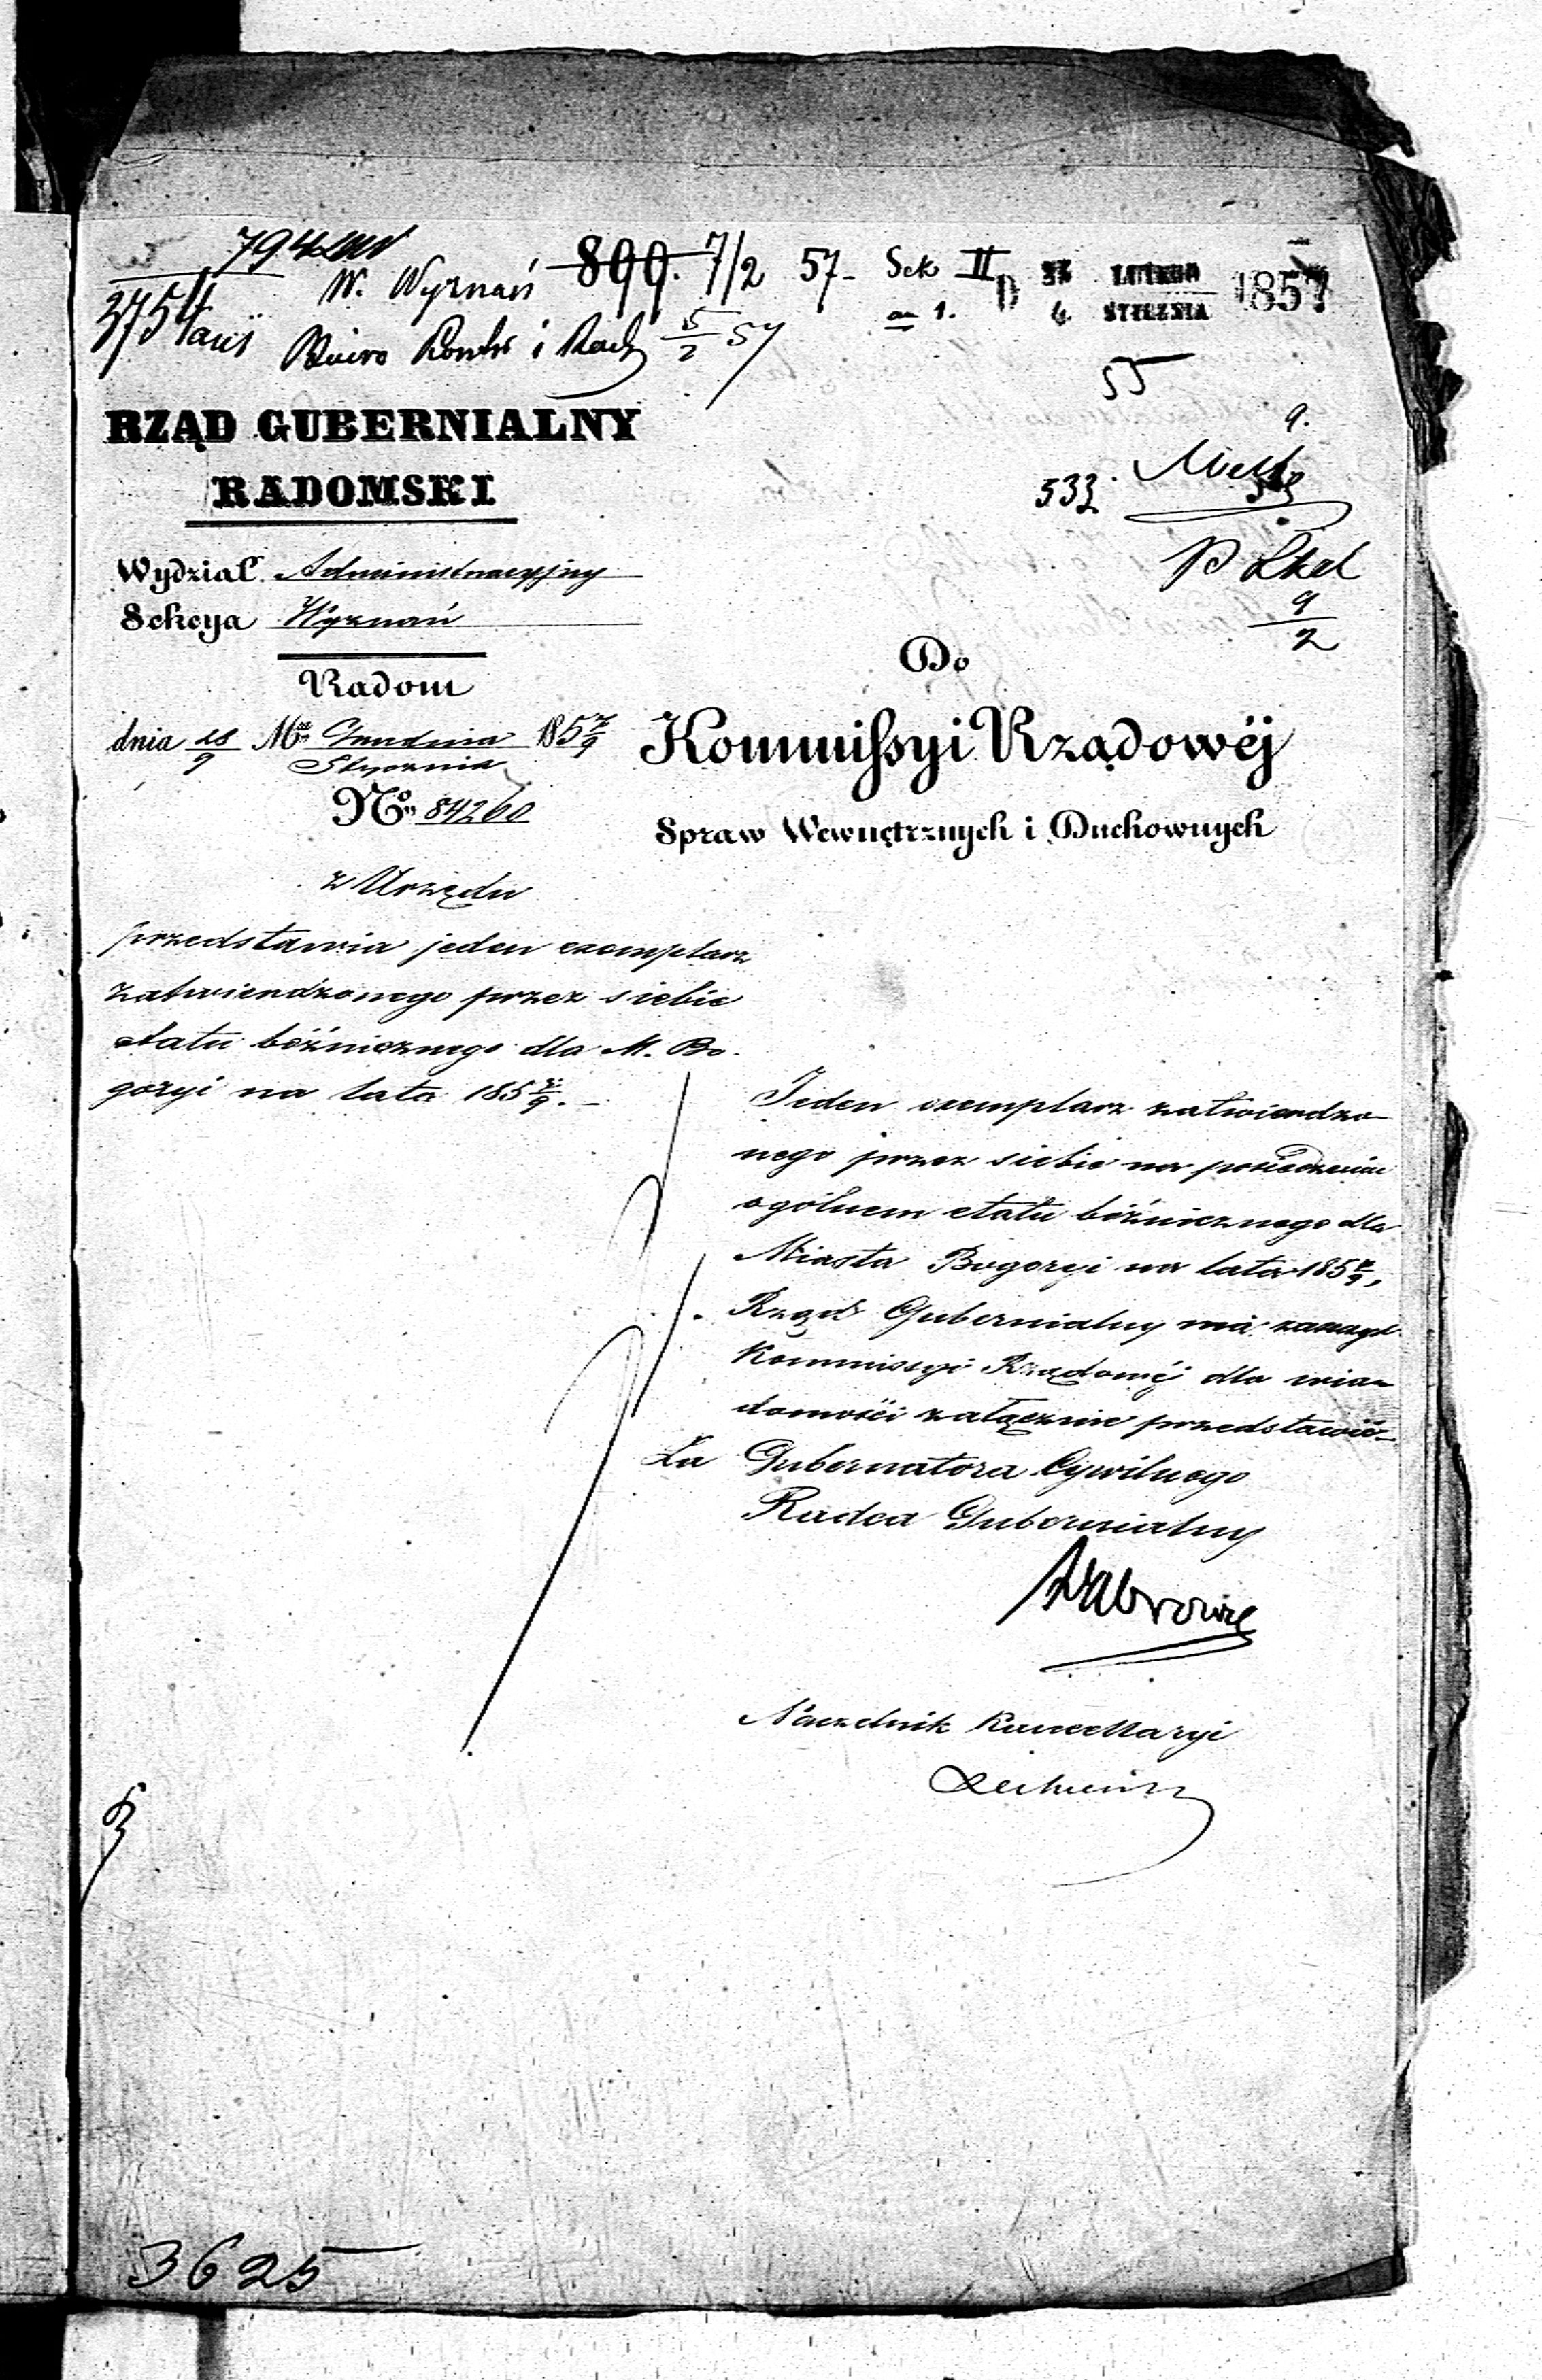 794
W. Wyznań 899. 7/2 57 - Sek II
D 4 LUTEGO STYCZNIA 1857
Biuro Kontr i Rach 5/2 57
55
9.
533.
9/2
RZĄD GUBERNIALNY
RADOMSKI
Wydział Administracyjny
Sekcya Wyznań
Radom
dnia 28/9 Mca Grudnia/Stycznia 185 7/9
No 84260
Do
Kommissyi Rządowéj
Spraw Wewnętrznych i Duchownych
z Urzędu
przedstawia jeden exemplarz
zatwierdzonego przez siebie
etatu bóżnicznego dla M. Bo-
goryi na lata 185 7/9. -
Jeden exemplarz zatwierdzo-
nego przez siebie na posiedzeniu
ogólnem etatu bóżnicznego dla
Miasta Bogoryi na lata 185 7/9,
Rząd Gubernialny ma zaszczyt
Kommissyi Rządowéj dla wia-
domości załącznie przedstawić. -
Za Gubernatora Cywilnego
Radca Gubernialny
Naczelnik Kancellaryi
3625